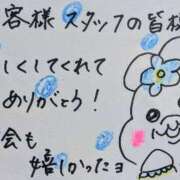 客様 スタッフの皆様
しくしてくれて
ありがとう!
会も
嬉しかったョ